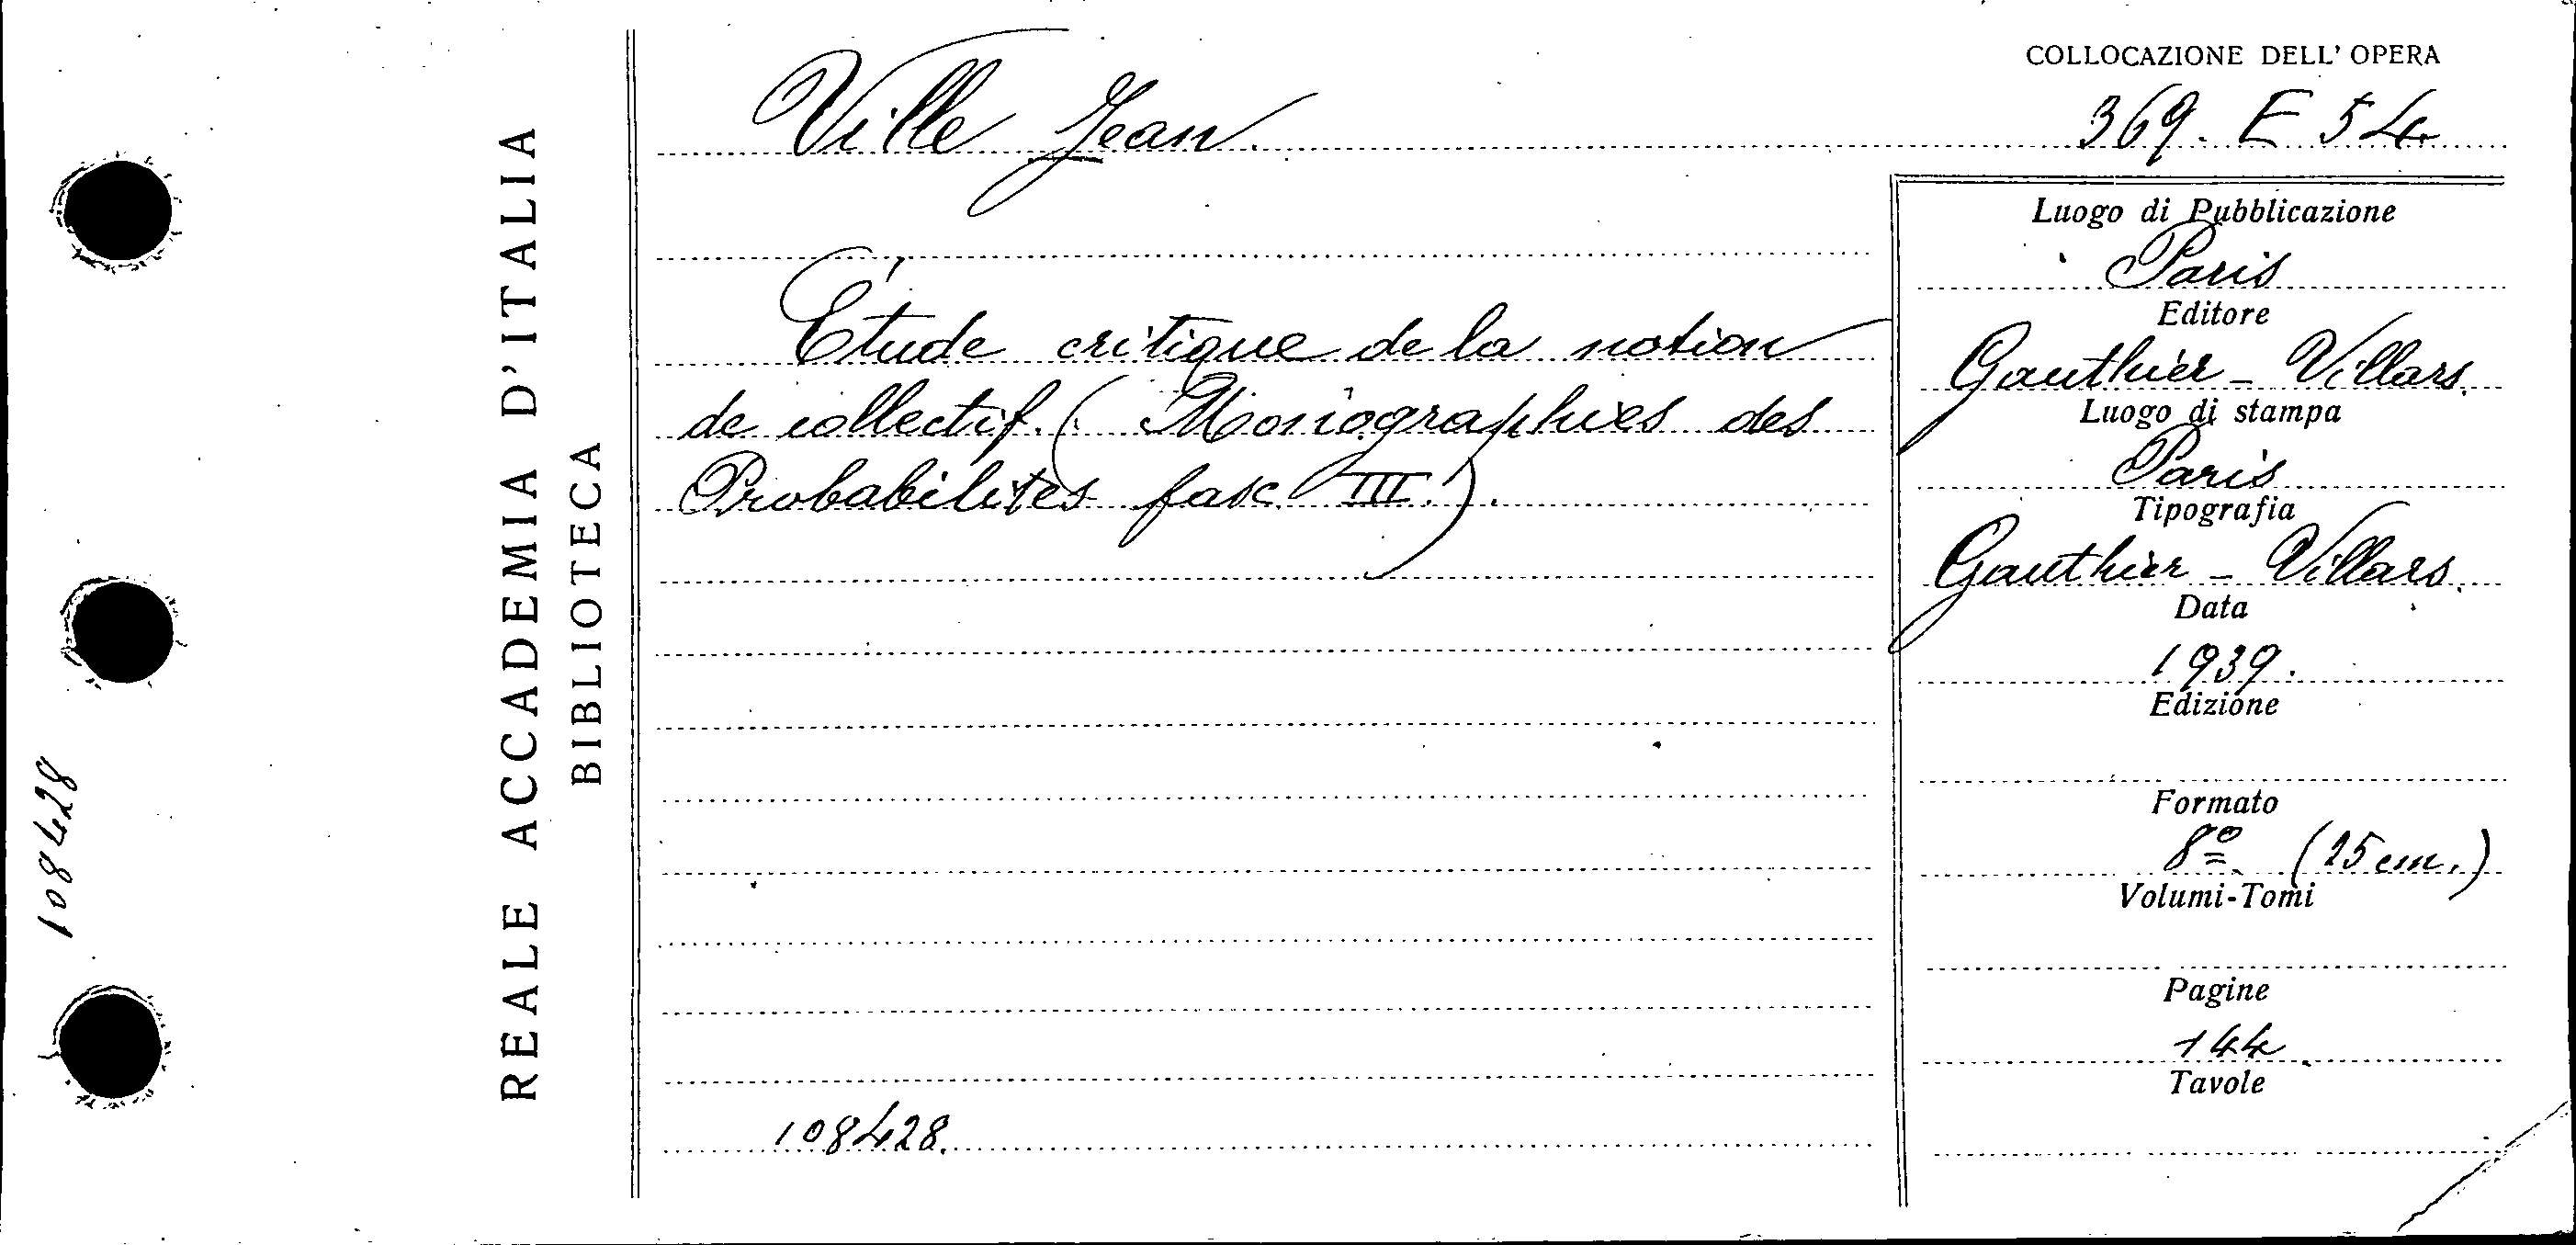 REALE ACCADEMIA D'ITALIA
BIBLIOTECA
108428
Ville Jean.
Étude critique de la notion
de collectif. (Monographies des
Probabilités fasc. III.).
108428.
COLLOCAZIONE DELL' OPERA
369. E 54
Luogo di Pubblicazione
Paris
Editore
Gauthier-Villars.
Luogo di stampa
Paris
Tipografia
Gauthier-Villars.
Data
1939.
Edizione
Formato
8º (25 cm.)
Volumi-Tomi
Pagine
144
Tavole